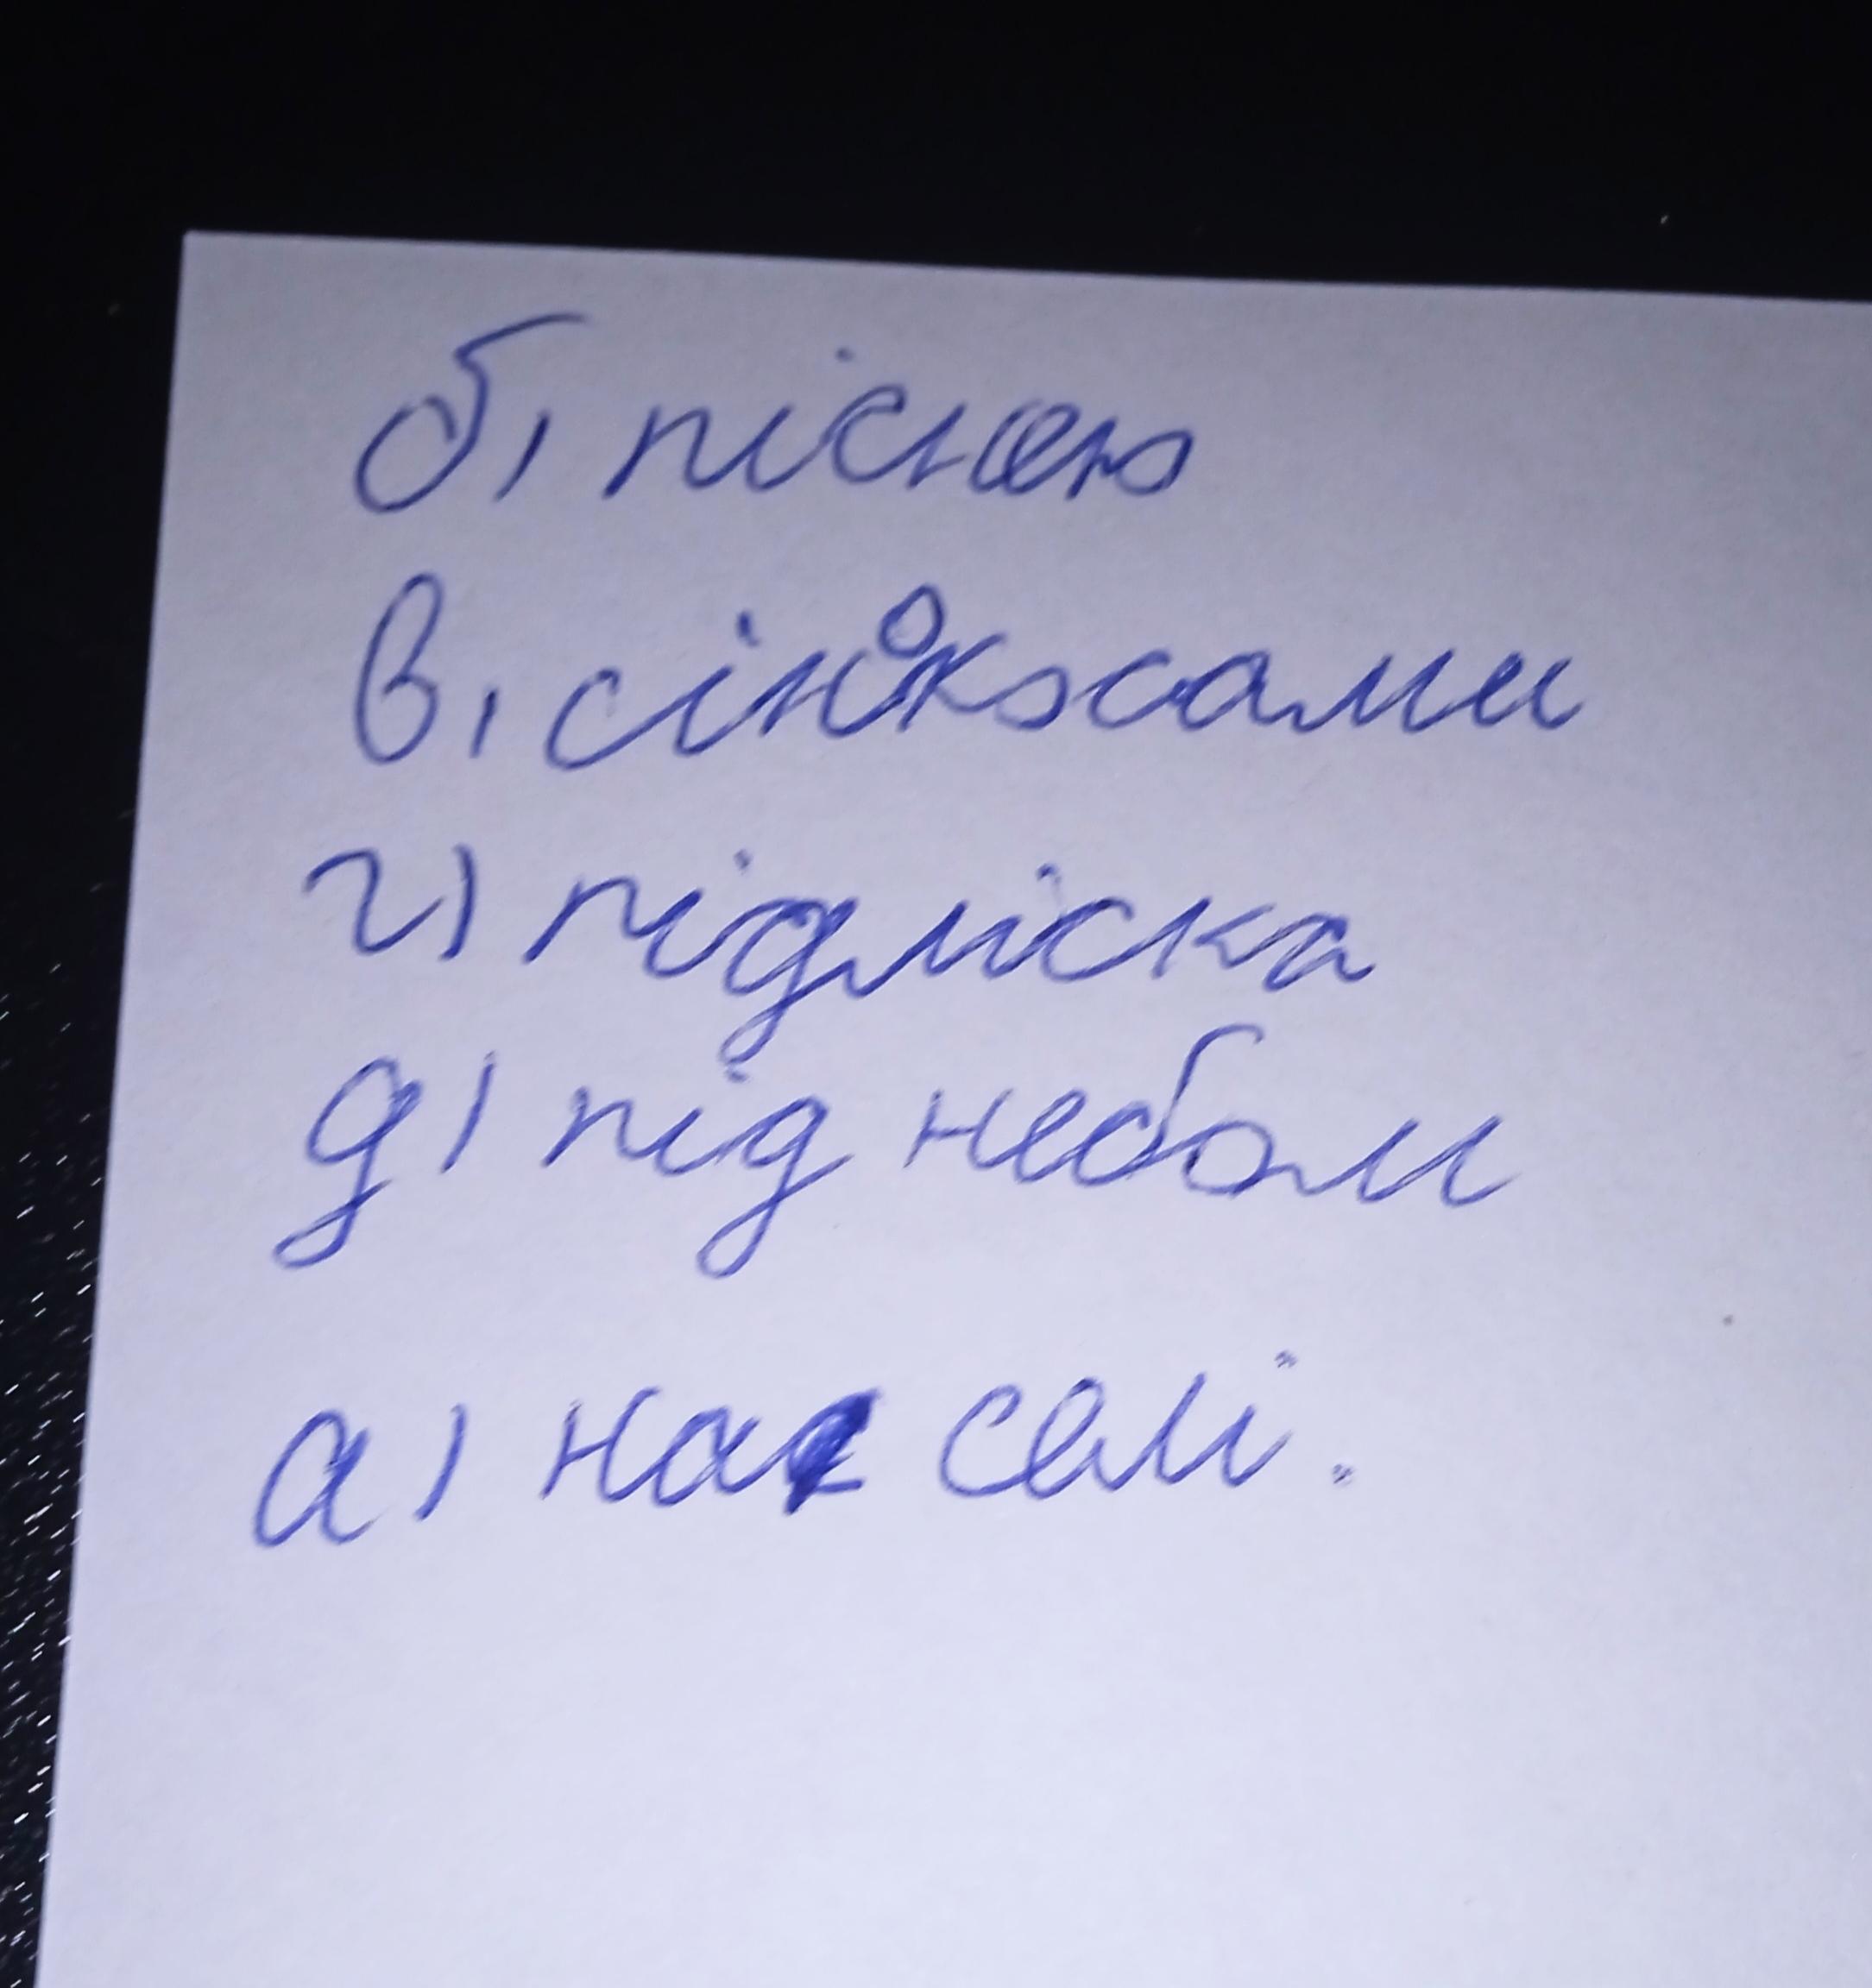 б) піснею
в) сінокосами
г) підліска
д) під небом
а) на селі.